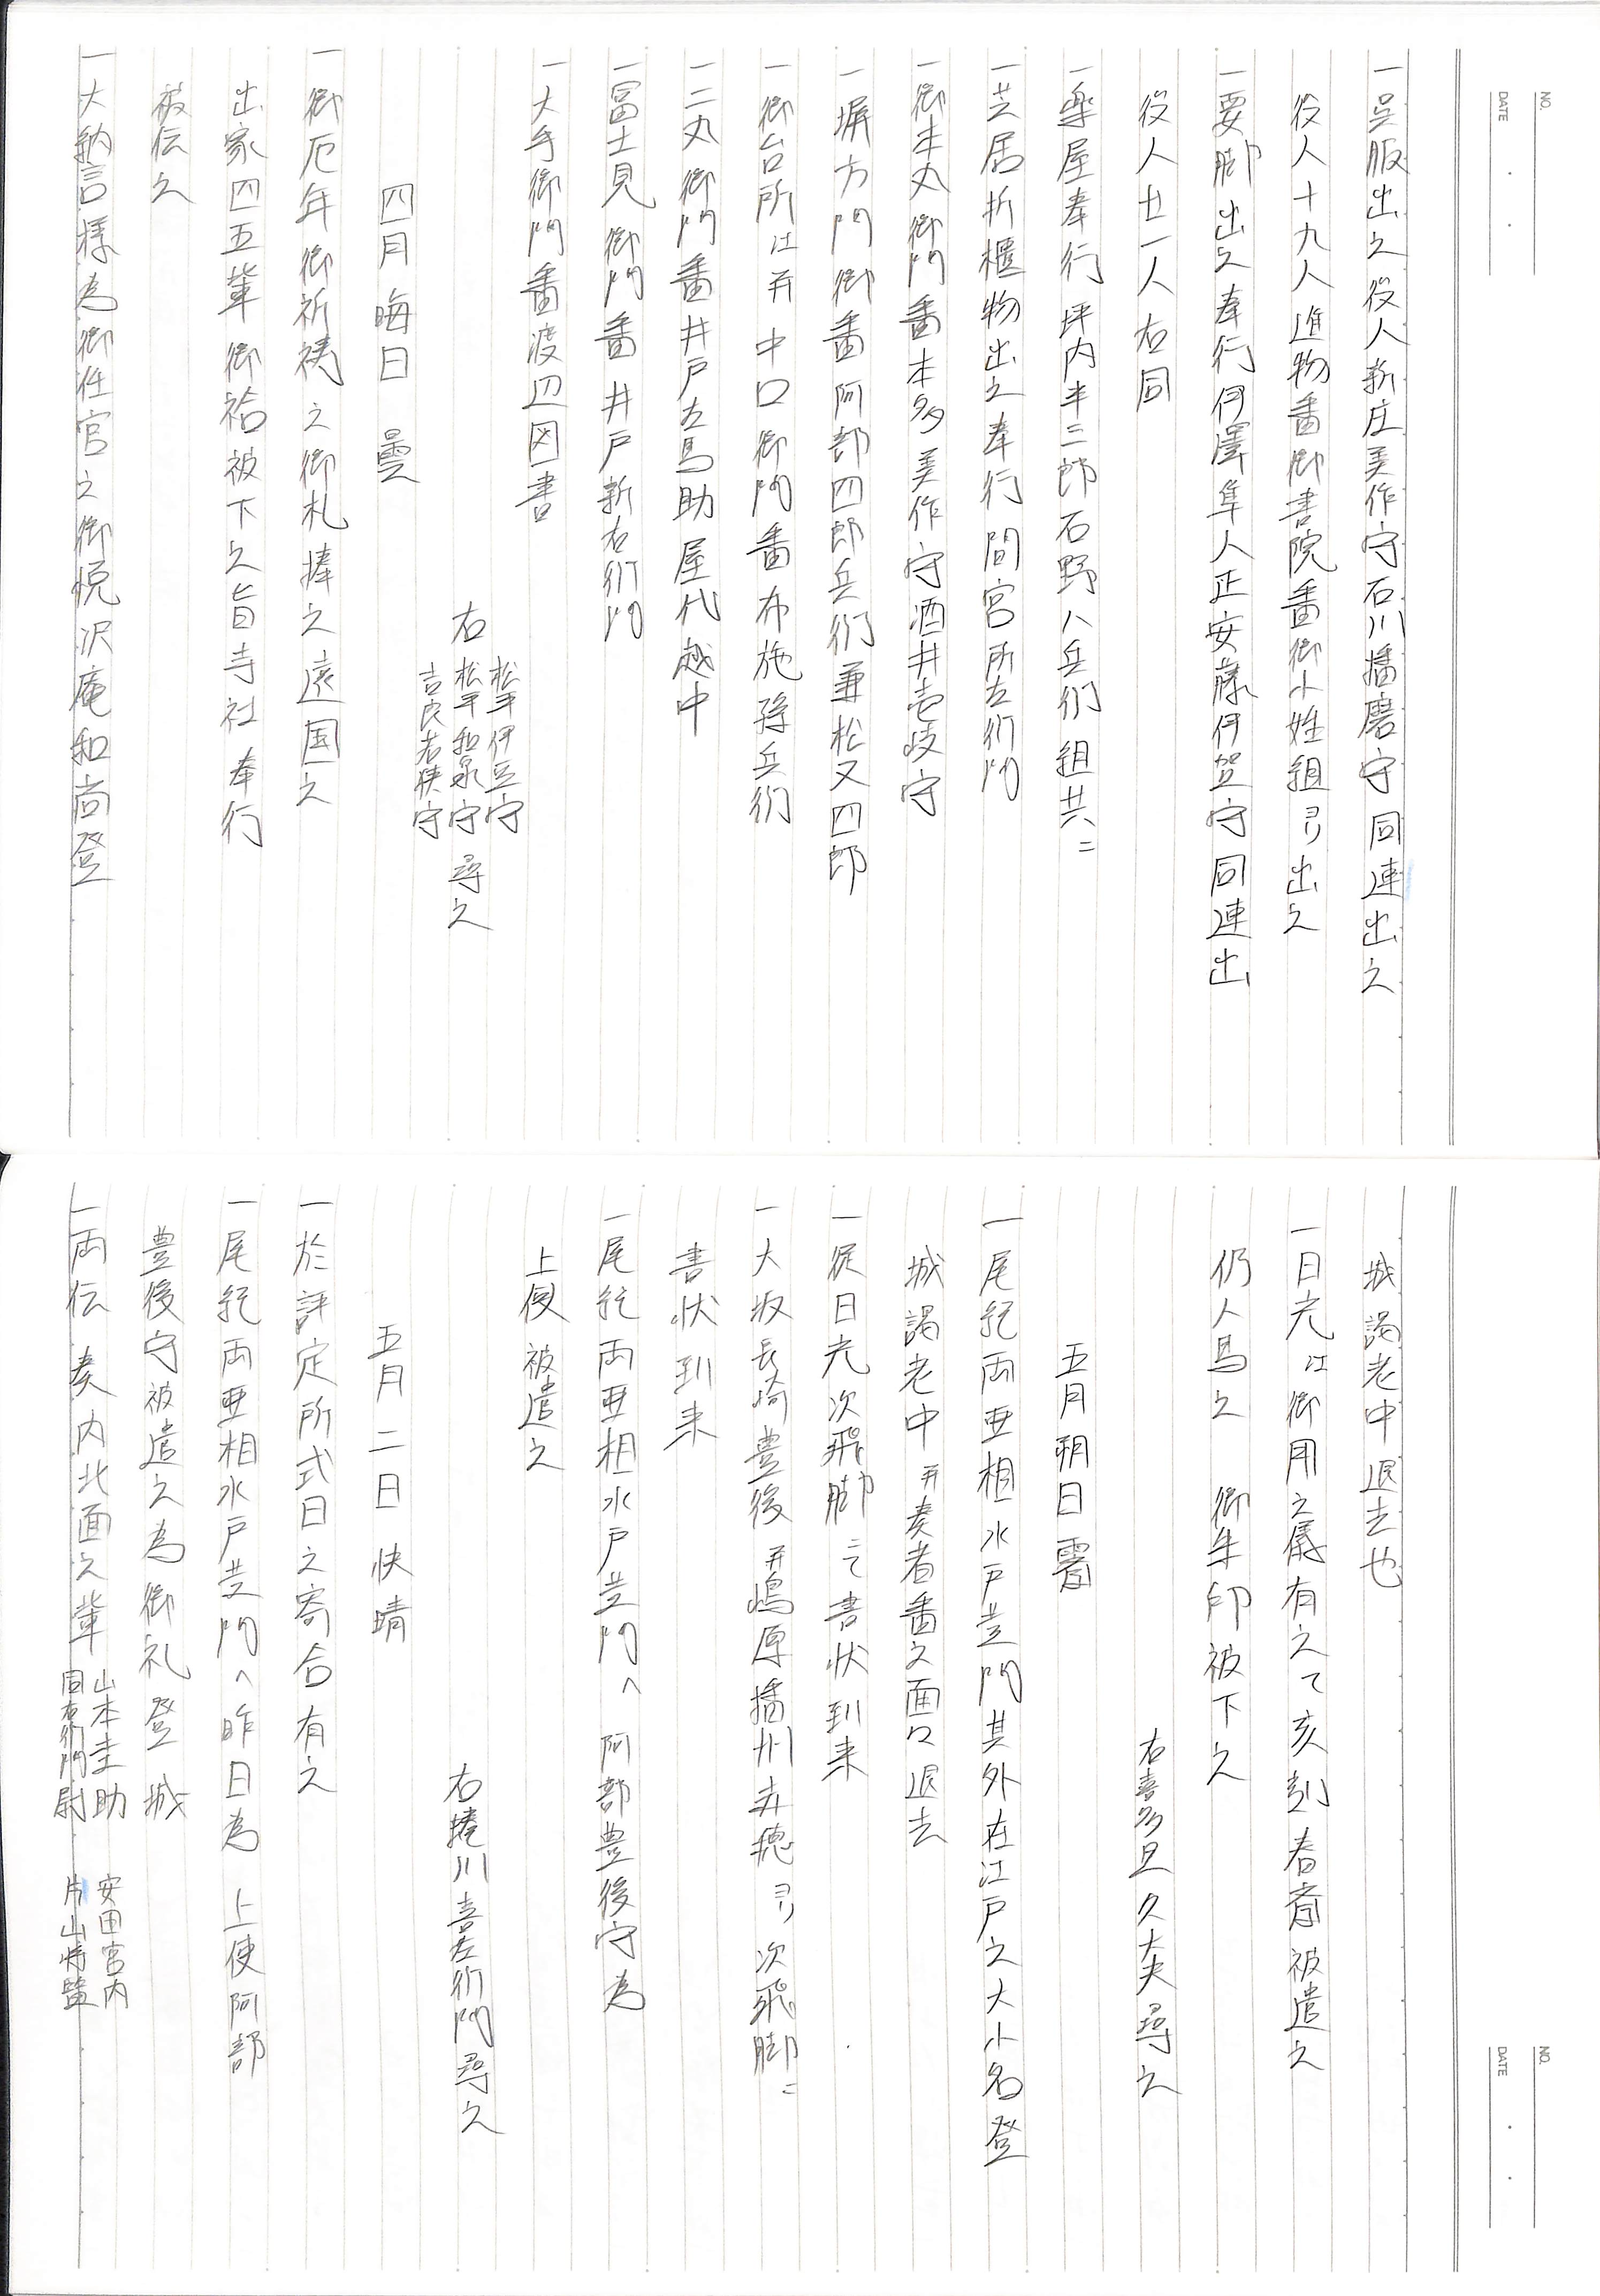 NO.
DATE
一呉服出之役人新庄美作守石川播磨守同連出之
役人十九人進物番御書院番御小姓組ヨリ出之
一要脚出之奉行伊澤隼人正安藤伊賀守同連出
役人廿一人右同
一楽屋奉行坪内半三郎石野八兵衛組共ニ
一芝居折櫃物出之奉行間宮所左衛門
一御本丸御門番本多美作守酒井壱岐守
一塀方門御番阿部四郎兵衛兼松又四郎
一御台所江并中口御門番布施孫兵衛
一二丸御門番井戸左馬助屋代越中
一冨士見御門番井戸新右衛門
一大手御門番渡辺図書
右 松平伊豆守 松平和泉守 吉良若狭守 尋之
四月晦日 曇
一御厄年御祈祷之御札捧之遠国之
出家四五輩御袷被下之旨寺社奉行
被伝之
一大納言様為御任官之御悦沢庵和尚登
NO.
DATE
城謁老中退去也
一日光江御用之儀有之て亥刻春斎被遣之
仍人馬之 御朱印被下之
右喜多見久大夫尋之
五月朔日 霽
一尾紀両亜相水戸黄門其外在江戸之大小名登
城謁老中并奏者番之面々退去
一従日光次飛脚ニて書状到来
一大坂長崎豊後并嶋原播州赤穂ヨリ次飛脚ニ
書状到来
一尾紀両亜相水戸黄門へ 阿部豊後守為
上使被遣之
右捲川喜左衛門尋之
五月二日 快晴
一於評定所式日之寄合有之
一尾紀両亜相水戸黄門へ昨日為 上使阿部
豊後守被遣之為御礼登城
一両伝 奏内北面之輩 山本圭助 同右衛門尉 安田宮内 片山将監